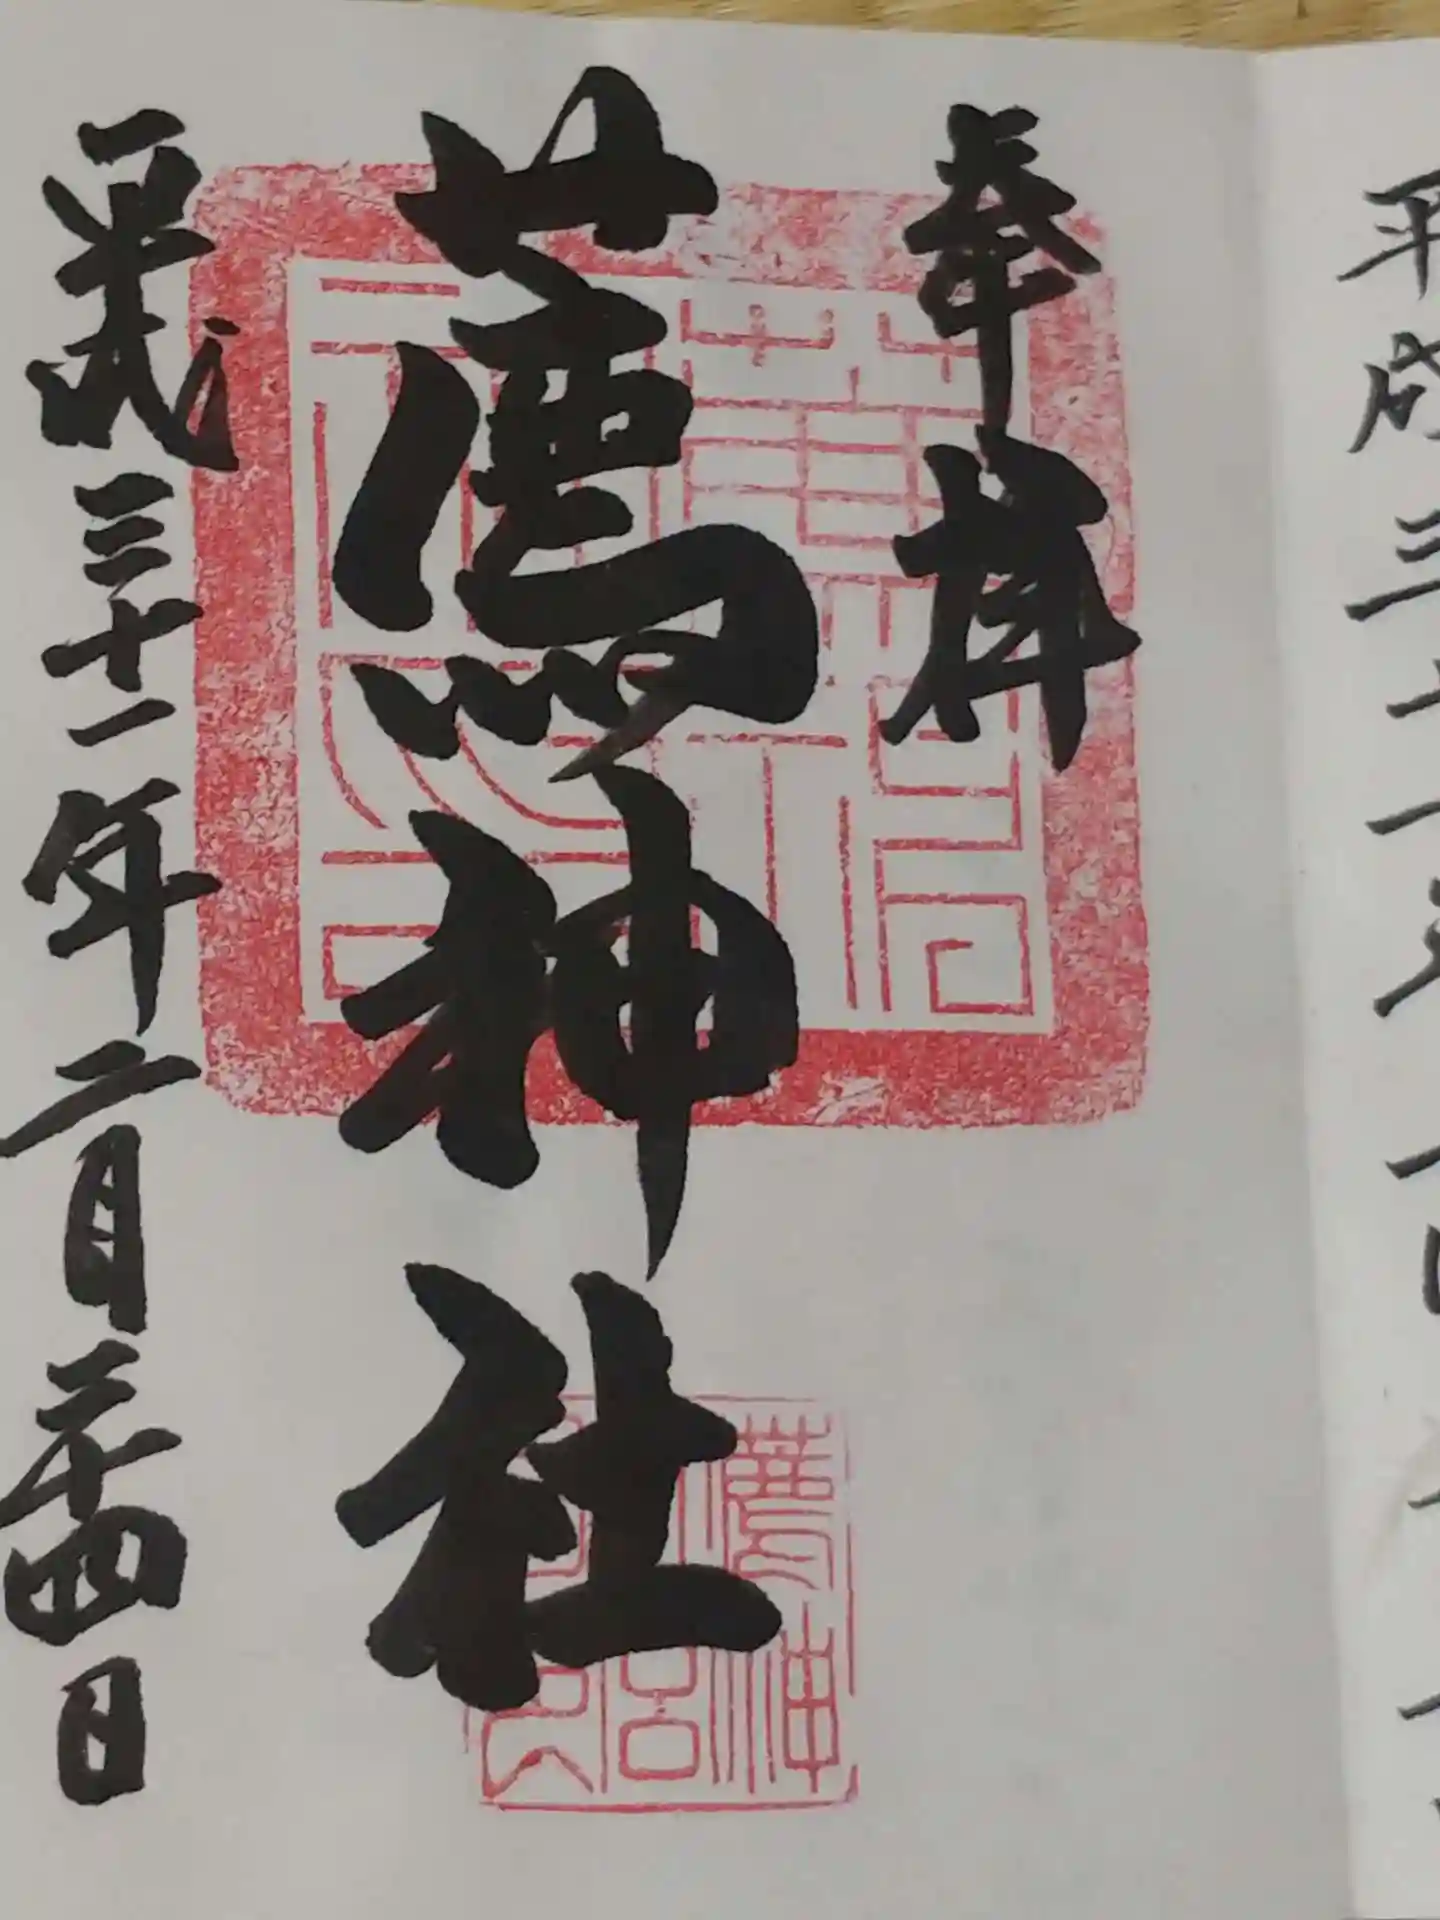 平成三十一年
奉拝
薦神社
平成三十一年二月二十四日